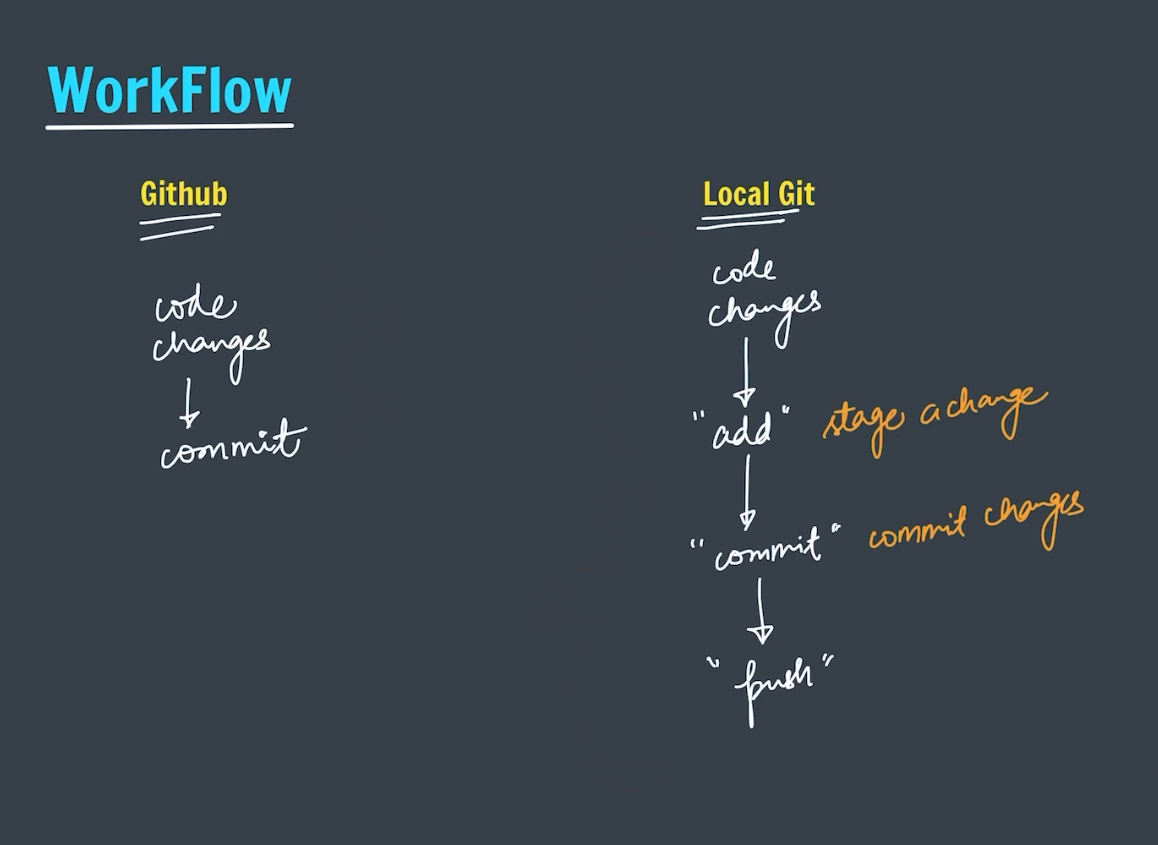 WorkFlow
Github
code
changes
commit
Local Git
code
changes
"add" stage a change
"commit" commit changes
"push"